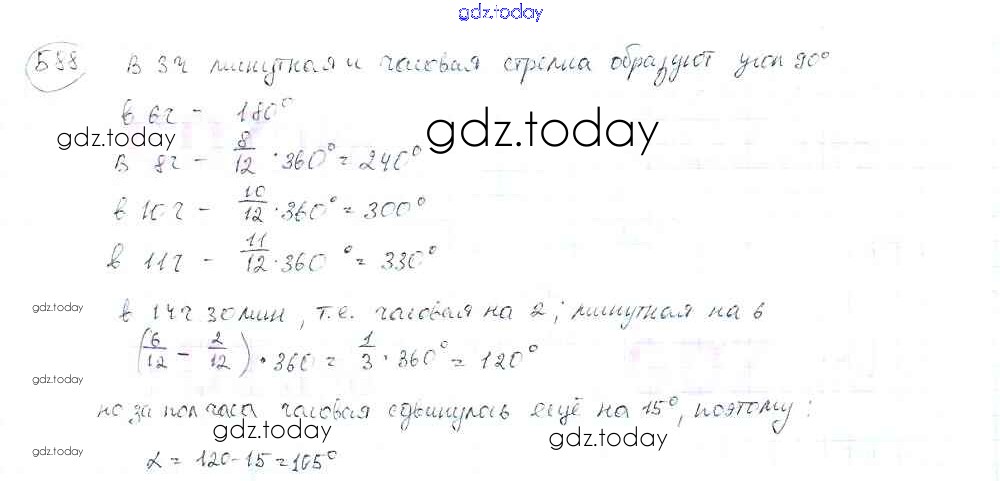 gdz.today
588 В 3ч минутная и часовая стрелка образуют угол 90°
в 6ч - 180°
gdz.today
gdz.today
в 8ч - 8/12 · 360° = 240°
в 10ч - 10/12 · 360° = 300°
в 11ч - 11/12 · 360° = 330°
gdz.today
в 14ч 30мин, т.е. часовая на 2; минутная на 6
(6/12 - 2/12) · 360 = 1/3 · 360° = 120°
gdz.today
но за полчаса часовая сдвинулась ещё на 15°, поэтому:
gdz.today
gdz.today
gdz.today
α = 120-15=105°